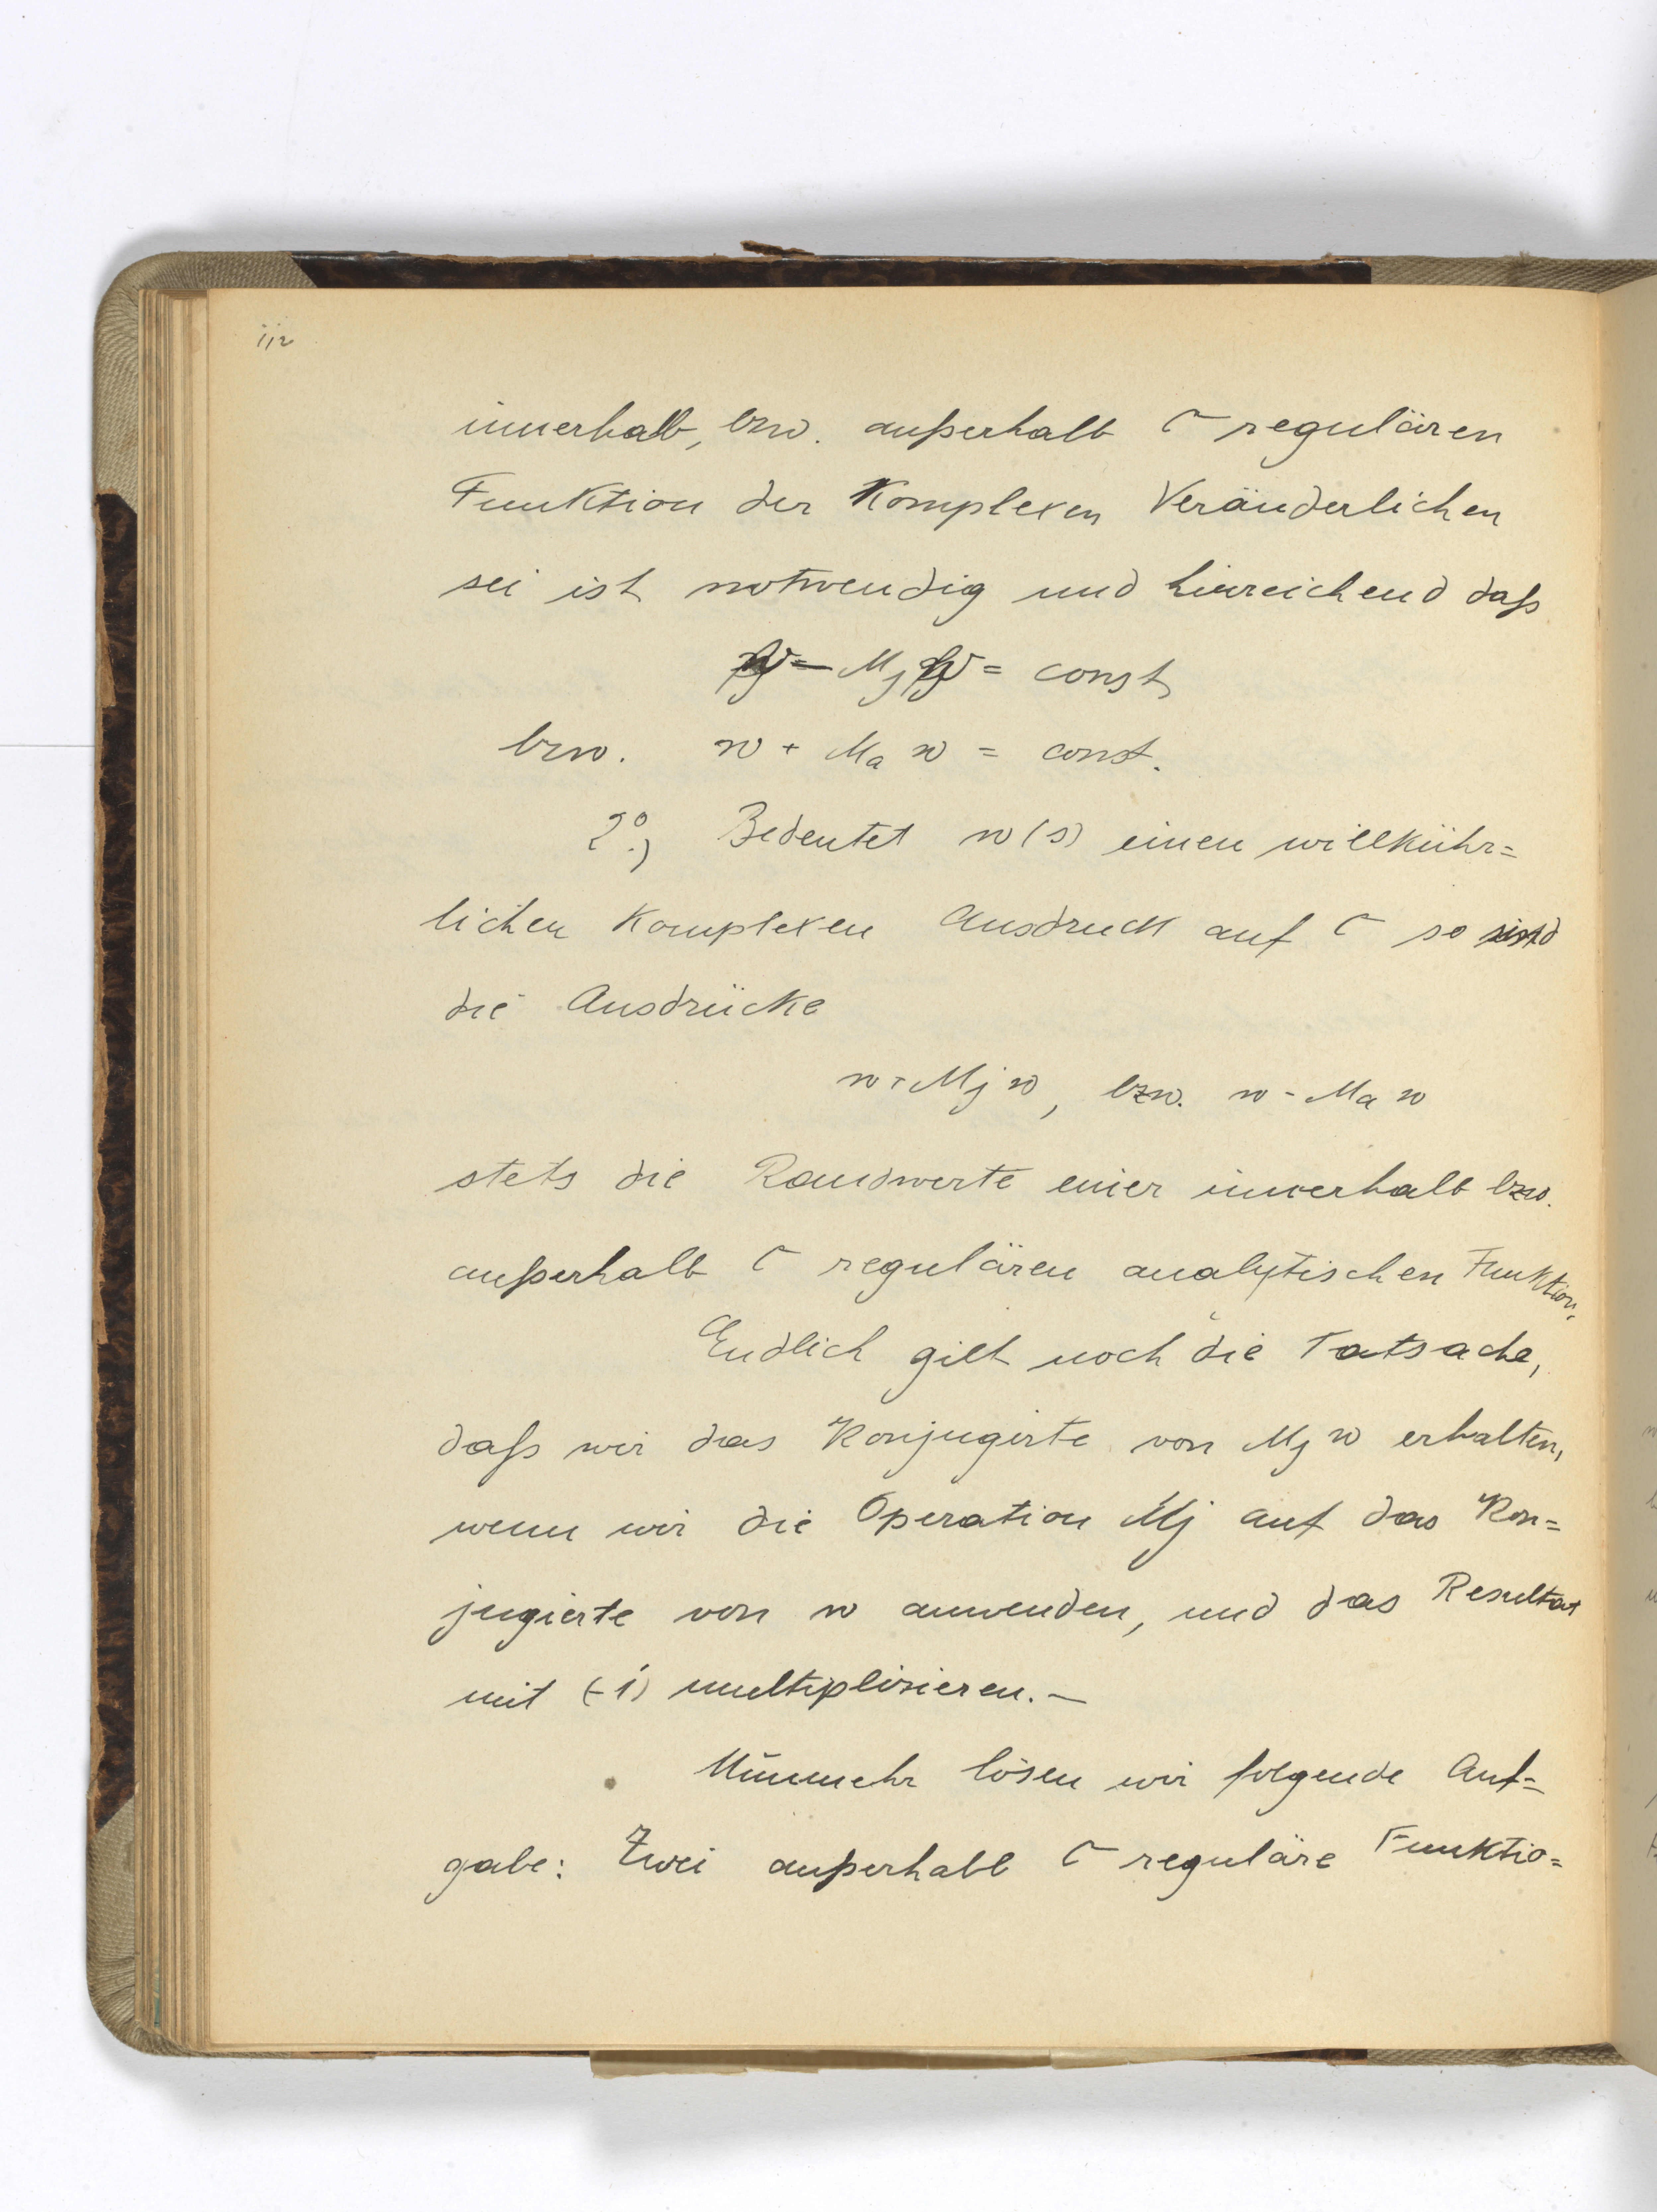 112
innerhalb, bzw. außerhalb C regulären
Funktion der Komplexen Veränderlichen
sei ist notwendig und hinreichend daß
w - Mj w = const
bzw. w + Ma w = const.
2°.) Bedeutet w(s) einen willkühr=
lichen Komplexen Ausdruck auf C so sind
die Ausdrücke
w + Mj w, bzw. w - Ma w
stets die Randwerte einer innerhalb bzw.
außerhalb C regulären analytischen Funktion.
Endlich gilt noch die Tatsache,
daß wir das Konjugirte von Mj w erhalten,
wenn wir die Operation Mj auf das Kon=
jugierte von w anwenden, und das Resultat
mit (-1) multiplizieren. —
Nunmehr lösen wir folgende Auf=
gabe: Zwei außerhalb C reguläre Funktio=